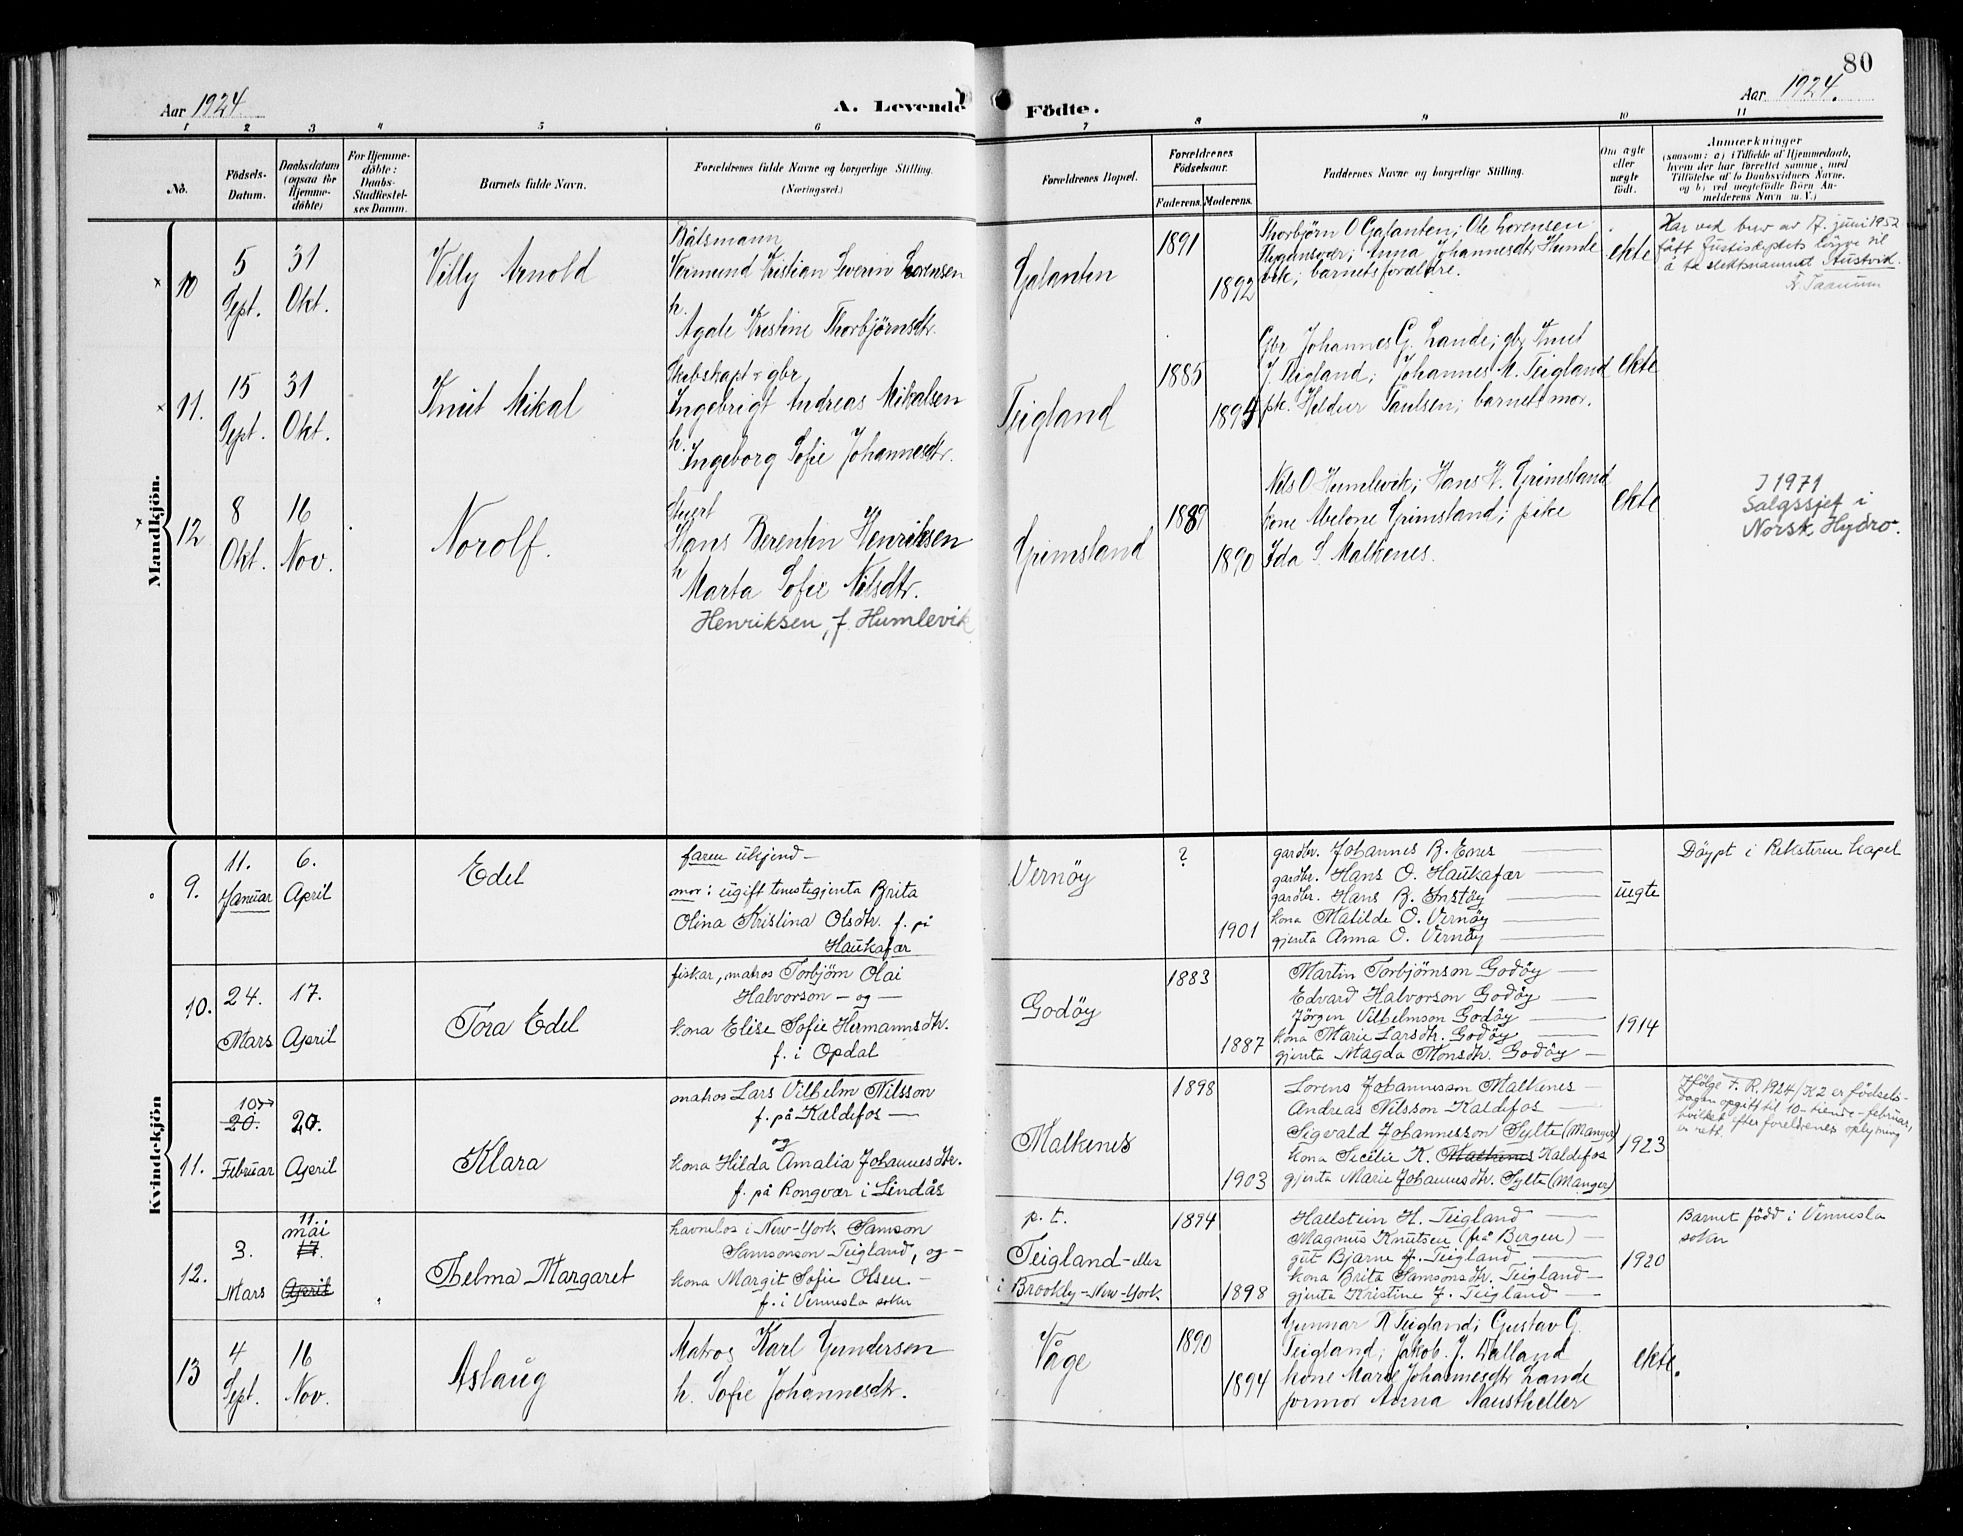 80
Aar 1924
A. Levende Födte.
Aar 1924.
1 2 3 4 5 6 7 8 9 10 11
No.
Födsels-Datum.
Daabsdatum (ogsaa for Hjemme-döbte)
For Hjemme-döbte: Daabs-Stadfæstel-ses Datum.
Barnets fulde Navn.
Forældrenes fulde Navne og borgerlige Stilling.
(Næringsvei.)
Forældrenes Bopæl.
Forældrenes Födselsaar.
Faderens. Moderens.
Faddernes Navne og borgerlige Stilling.
Om ægte eller uægte födt.
Anmærkninger
(saasom: a) i Tilfælde af Hjemmedaab,
hvem der har forrettet samme, med
Tilföielse af to Daabsvidners Navne,
og b) ved uægtefödte Börn An-
melderens Navn m. V.)
Mandkjön.
10
5 Sept.
31 Okt.
Villy Arnold
Båtsmann
Vermund Kristian Severin Lorensen
h.
Agate Kristine Thorbjørnsdtr.
Galanten
1891
1892
Thorbjörn O Galanten; Ole Lorensen
Anna Johannesdtr Hunde
vik; barnets foreldre.
ekte
Har ved brev av 17. juni 1952
fått Justisdeptets löyve til
å ta slektsnamnet Austvik.
11.
15 Sept.
31 Okt.
Knut Mikal
Ingebrigt Andreas Mikalsen
h.
Ingeborg Sofie Johannesdtr.
Teigland
1885
1894
Gbr Johannes G. Lande; gbr Knut
J. Teigland; Johannes M. Teigland
pk. Heldur Paulsen; barnets mor.
ekte
12
8 Okt.
16 Nov.
Norolf.
Stuert
Hans Berentin Henriksen
h
Marta Sofie Nilsdtr.
Henriksen, f. Humlevik
Grimsland
1889
1890
Nils O Humlevik; Hans H. Grimsland
kone Abelone Grimsland; pike
Ida S. Malkenes.
ekte
I 1971
Salgssjef i
Norsk Hydro.
Kvindekjön
9.
11. Januar
6. April
Edel
faren ukjend —
mor: ugift tenestegjenta Brita
Olina Kristina Olsdtr. f. på
Haukafær
Vernöy
?
1901
gardbr. Johannes B. Enes —
gardbr. Hans O. Haukafær —
gardbr. Hans B. Instöy —
kona Matilde O. Vernöy —
gjenta Anna O. Vernöy —
uegte
Döypt i Reksteren kapel
10.
24. Mars
17. April
Tora Edel
fiskar, matros Torbjörn Olai
Halvorson — og —
kona Elise Sofie Hermannsdtr.
f. i Opdal
Godöy
1883
1887
Martin Torbjörnson Godöy —
Edvard Halvorson Godöy —
Jörgen Vilhelmson Godöy —
kona Marie Larsdtr. Godöy —
gjenta Magda Monsdtr. Godöy —
1914
11.
10de
20.
Februar
20. April
Klara
matros Lars Vilhelm Nilsson
f. på Kaldefos —
og
kona Hilda Amalia Johannesdtr.
f. på Rongvær i Lindås
Malkenes
1898
1903
Lorens Johannesson Malkenes —
Andreas Nilsson Kaldefos —
Sigvald Johannesson Sylta (Manger)
kona Secilie K. Malkenes Kaldefos
gjenta Marie Johannesdtr. Sylta (Manger)
1923
Ifølge F. R. 1924/K2 er fødsels-
dagen opgitt til 10-tiende-februar,
hvilket efter foreldrenes oplysning
er rett.
12.
3. Mars
11. mai
17. April
Thelma Margaret
havnelos i New-York Samson
Samsonson Teigland, og —
kona Margit Sofie Olsen —
f. i Vennesla sokn
p. t.
Teigland - eller
i Brookly-New-York
1894
1898
Hallstein H. Teigland —
Magnus Knutsen (frå Bergen) —
gut Bjarne J. Teigland —
kona Brita Samsonsdtr. Teigland —
gjenta Kristine J. Teigland —
1920
Barnet född i Vennesla
sokn
13
4 Sept.
16 Nov.
Aslaug
Matros Karl Gundersen
h. Sofie Johannesdtr.
Våge
1890
1894
Gunnar R Teigland; Gustav G.
Teigland; Jakob J. Dalland
kone Marie Johannesdtr Lande
formor Anna Naustheller
ekte.